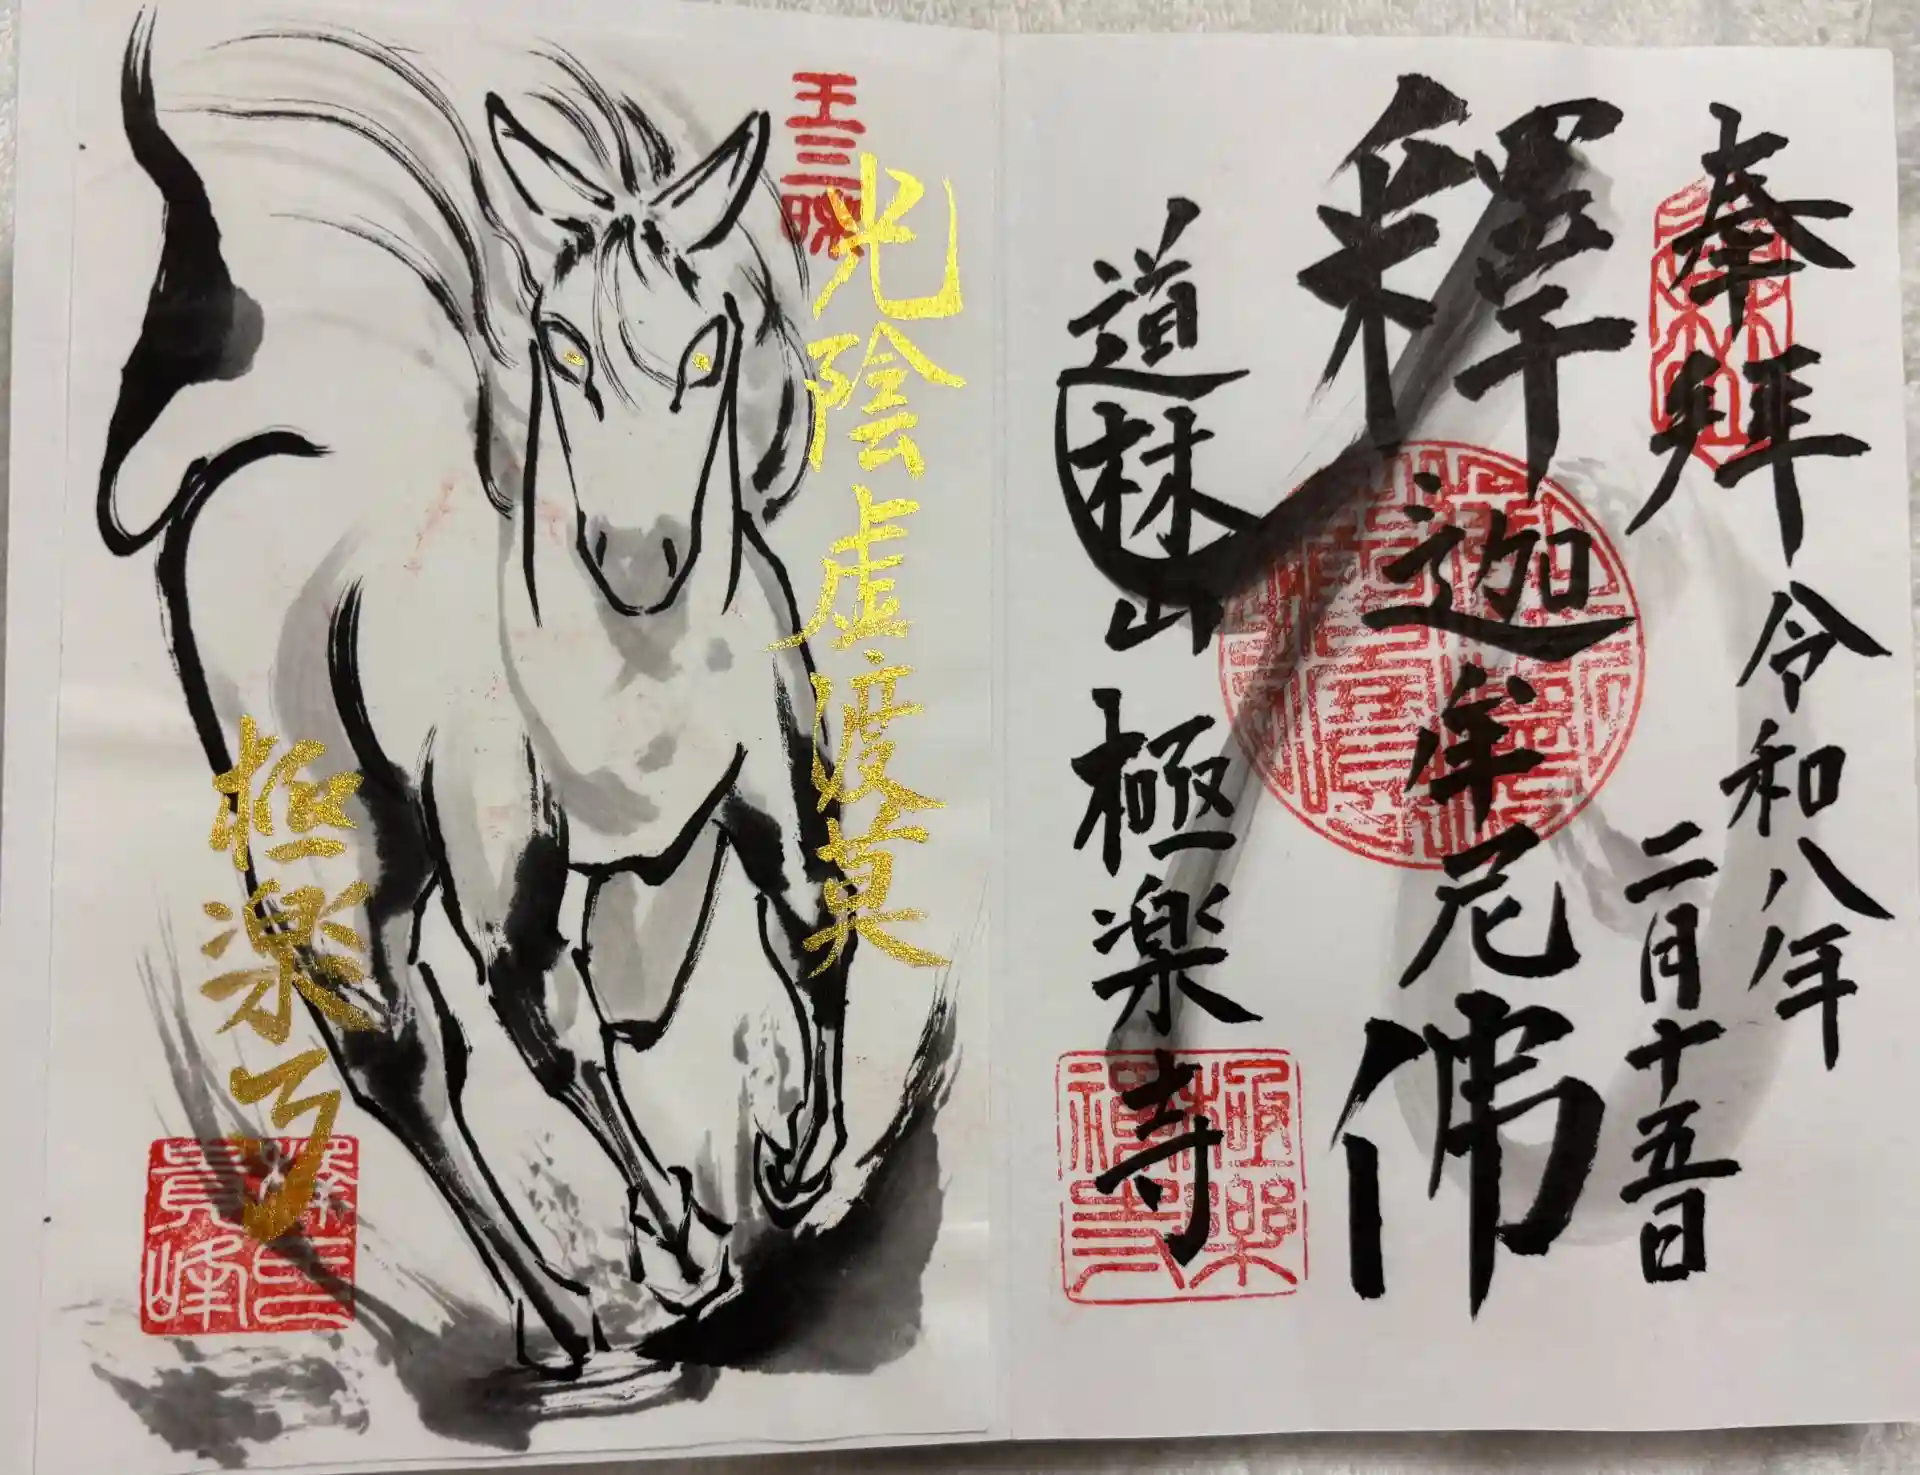 奉拝
令和八年
二月十五日
釋迦牟尼佛
道林山 極楽寺
極樂禅寺
光陰虚渡莫
極楽
貴峰